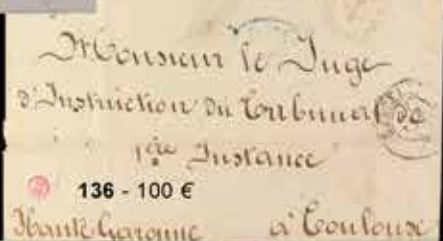 Monsieur le Juge
d'Instruction du Tribunal de
1ère Instance
136 - 100 €
Haute Garonne à Toulouse